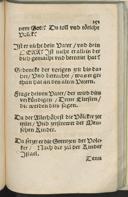 dem Gott? Du toll und töricht
Volck?
Ist er nicht dein Vater / und dein
HERR? Ist nicht er allein der
dich gemacht und bereitet hat?
Gedencke der vorigen zeit bis da-
her / Und betrachte / was er ge-
than hat an den alten Vätern.
Frage deinen Vater / der wird dirs
verkündigen / Deine Eltesten /
die werden dirs sagen.
Da der Allerhöhest die Völcker zer-
teilet / Und zerstrewet der Men-
schen Kinder.
Da setzet er die Grentzen der Völc-
ker / Nach der zal der Kinder
Israel.
Denn